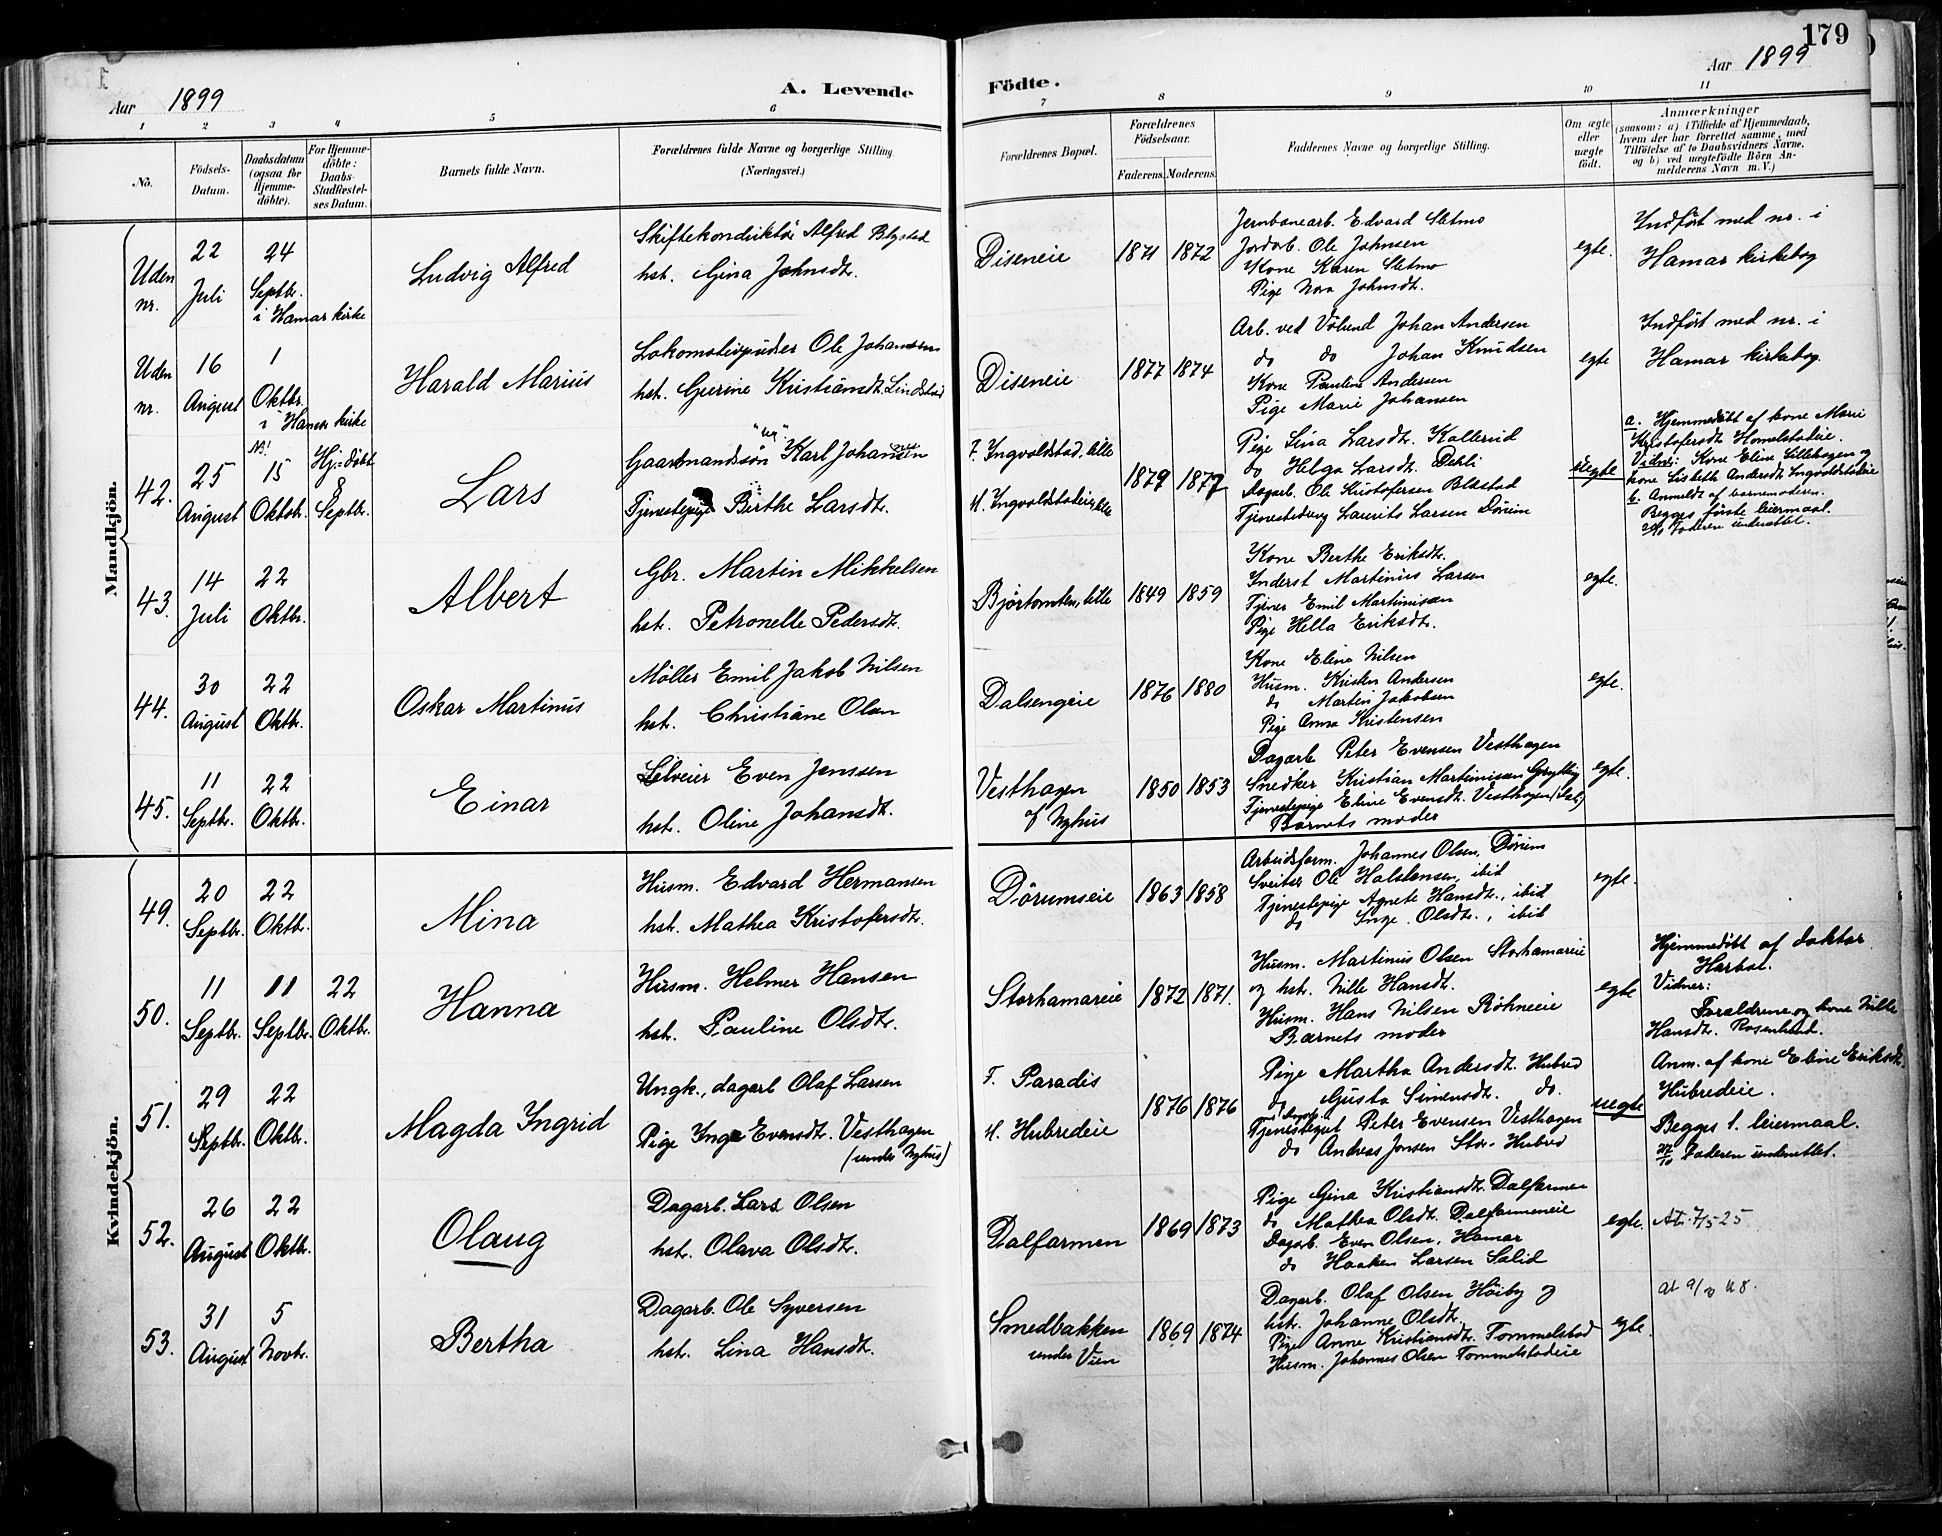 179
Aar 1899
A. Levende Födte.
Aar 1899
1 2 3 4 5 6 7 8 9 10 11
No.
Födsels-Datum.
Daabsdatum (ogsaa for Hjemme-döbte).
For Hjemme-döbte: Daabs-Stadfæstel-ses Datum.
Barnets fulde Navn.
Forældrenes fulde Navne og borgerlige Stilling (Næringsvei.)
Forældrenes Bopæl.
Forældrenes Födselsaar.
Faderens. Moderens.
Faddernes Navne og borgerlige Stilling.
Om ægte eller uægte födt.
Anmærkninger
(saasom: a) i Tilfælde af Hjemmedaab, hvem der har forrettet samme, med Tilföielse af to Daabsvidners Navne, og b) ved uægtefödte Börn An-melderens Navn m. V.)
Mandkjön.
Uden nr.
22 Juli
24 Septbr. i Hamar kirke
Ludvig Alfred
Skiftekonduktör Alfred Blystad
hst. Gina Johnsdt.
Diseneie
1871 1872
Jernbanearb. Edvard Sletmo
Jordarb. Ole Johnsen
Kone Karen Sletmo
Pige Nora Johnsdt.
egte.
Indfört med nr. i
Hamar kirkebog
Uden nr.
16 August
1 Oktbr. i Hamar kirke
Harald Marius
Lokomotivpudser Ole Johansen
hst. Gurine Kristiansdt. Lindstad
Diseneie
1877 1874
Arb. ved Völund Johan Andersen
do do Johan Knudsen
Kone Pauline Andersen
Pige Marie Johansen
egte
Indfört med nr. i
Hamar kirkebog.
42.
25 August
15 Oktob.
Hj.-döbt 8 Septbr.
Lars
Gaardmandssön Karl Johansen
Tjenestepige Berthe Larsdt.
F. Ingvoldstad, lille
M. Ingvoldstadeie, lille
1879 1877
Pige Lina Larsdt. Kollerud
do Helga Larsdt. Dehli
Dagarb. Ole Kristofersen Blæstad
Tjenestedreng Laurits Larsen Dörum
uegte
a. Hjemmedöbt af kone Marie
Kristofersdt. Homelstadeie.
Vidner: Kone Eline Lillehagen og
kone Lisbeth Andersdt. Ingvoldstadeie
b. Anmeldt af barnemoderen.
Begges förste leiermaal.
Faderen underrettet.
43.
14 Juli
22 Oktbr.
Albert
Gbr. Martin Mikkelsen
hst. Petronelle Pedersdt.
Bjørtomten, lille
1849 1859
Kone Berthe Eriksdt.
Inderst Martinius Larsen
Tjener Emil Martinisen
Pige Hella Eriksdt.
egte.
44.
30 August
22 Oktb.
Oskar Martinus
Möller Emil Jakob Nilsen
hst. Christiane Olsen
Dalsengeie
1876 1880
Kone Eline Nilsen
Husm. Kristen Andersen
do Martin Jakobsen
Pige Anna Kristensen
egte.
45.
11 Septbr.
22 Oktbr.
Einar
Selveier Even Jenssen
hst. Oline Johansdt.
Vesthagen
af Nyhus
1850 1853
Dagarb. Peter Evensen Vesthagen
Snedker Kristian Martinisen Grytting
Tjenestepige Eline Evensdt. Vesthagen
Barnets moder
egte.
Kvindekjön.
49.
20 Septbr.
22 Oktbr.
Mina
Husm. Edvard Hermansen
hst. Mathea Kristofersdt.
Dörumseie
1863 1858
Arbeidsform. Johannes Olsen, Dörum
Sveitser Ole Halstensen, ibid
Tjenestepige Agnete Hansdt., ibid
do Inge. Olsdt., ibid
egte.
50.
11 Septbr.
11 Septbr.
22 Oktbr.
Hanna
Husm. Helmer Hansen
hst. Pauline Olsdtr.
Storhamareie
1872 1871.
Husm. Martinius Olsen Storhamareie
og hst. Nille Hansdt.
Husm. Hans Nilsen Röhneeie
Barnets moder
egte
Hjemmedöbt af doktor
Harboe.
Vidner:
Forældrene og kone Nille
Hansdt. Rosenlund.
51.
29 Septbr.
22 Oktbr.
Magda Ingrid
Ungk., dagarb. Olaf Larsen
Pige Inge Evensdt. Vesthagen
(under Nyhus)
F. Paradis
M. Hubredeie
1876 1876
Pige Martha Andersdt. Hubred
do Gusta Simensdt. do.
Peter Evensen Vesthagen
do Andreas Jensen Stor-Hubred
uegte
Anm. af kone Eline Eriksdt.
Hubredeie.
Begges 1. leiermaal.
Faderen underrettet.
52.
26 August
22 Oktbr.
Olaug
Dagarb. Lars Olsen
hst. Olava Olsdt.
Dalfarmen
1869 1873
Pige Gina Kristiansdt. Dalfarmen
do Mathea Olsdt. Dalfarmeneie
Dagarb. Even Olsen, Hamar
do Haaken Larsen Salid
egte.
At. 7/5 25
53.
31 August
5 Novbr.
Bertha
Dagarb. Ole Syversen
hst. Lina Hansdt.
Smedbakken
under Vien
1869 1874
Dagarb. Olaf Olsen Höiby og
hst. Johanne Olsdt.
Pige Anne Kristiansdt. Tommelstad
Husm. Johannes Olsen Tommelstadeie
egte.